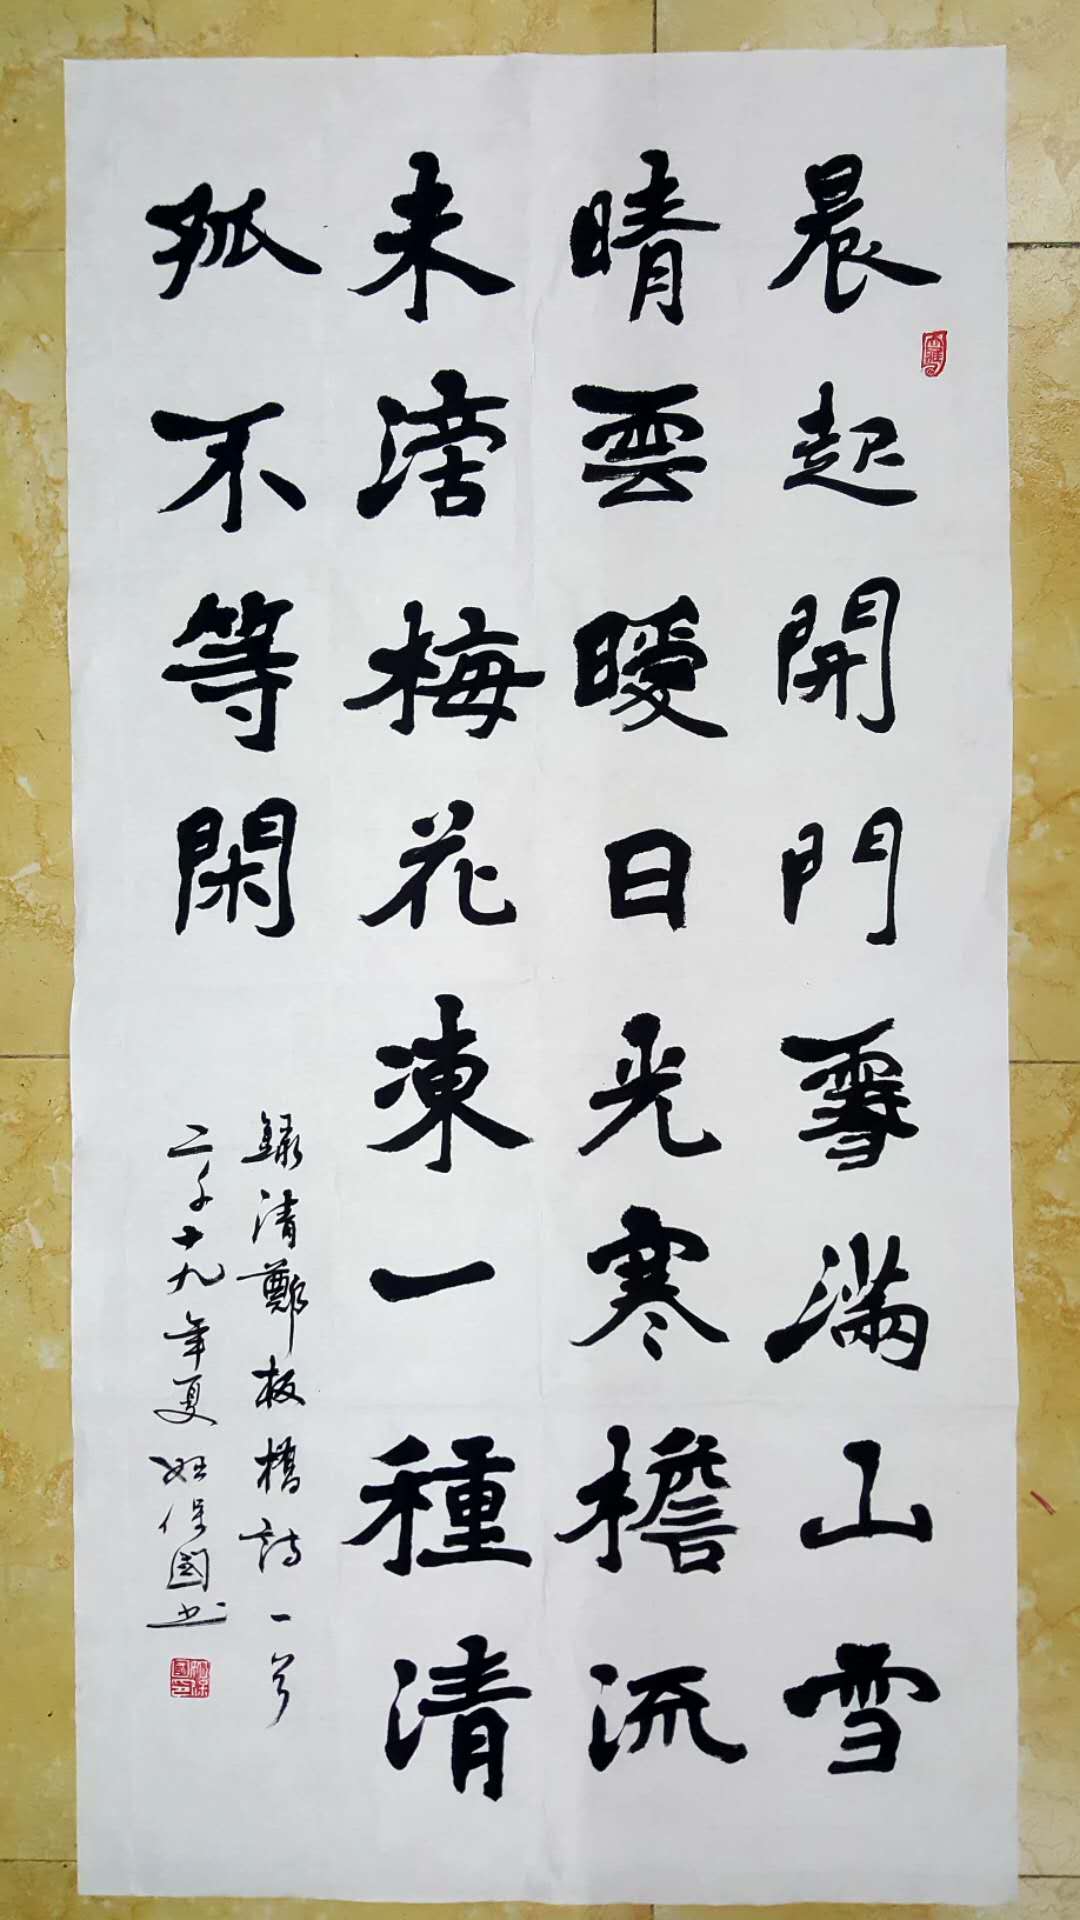 晨起開門雪滿山雪
晴雲暖日光寒檐流
未滴梅花凍一種清
孤不等閑
錄清鄭板橋詩一首
二千十九年夏姬保國書